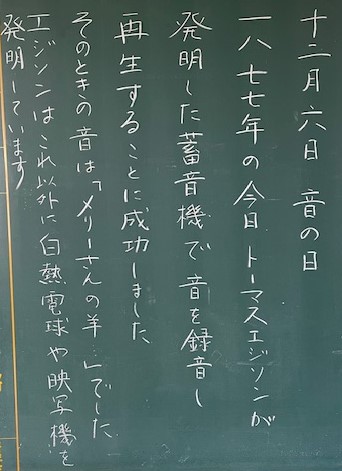 十二月六日 音の日
一八七七年の今日トーマスエジソンが
発明した蓄音機で音を録音し
再生することに成功しました
そのときの音は「メリーさんの羊…」でした
エジソンはこれ以外に白熱電球や映写機を
発明しています